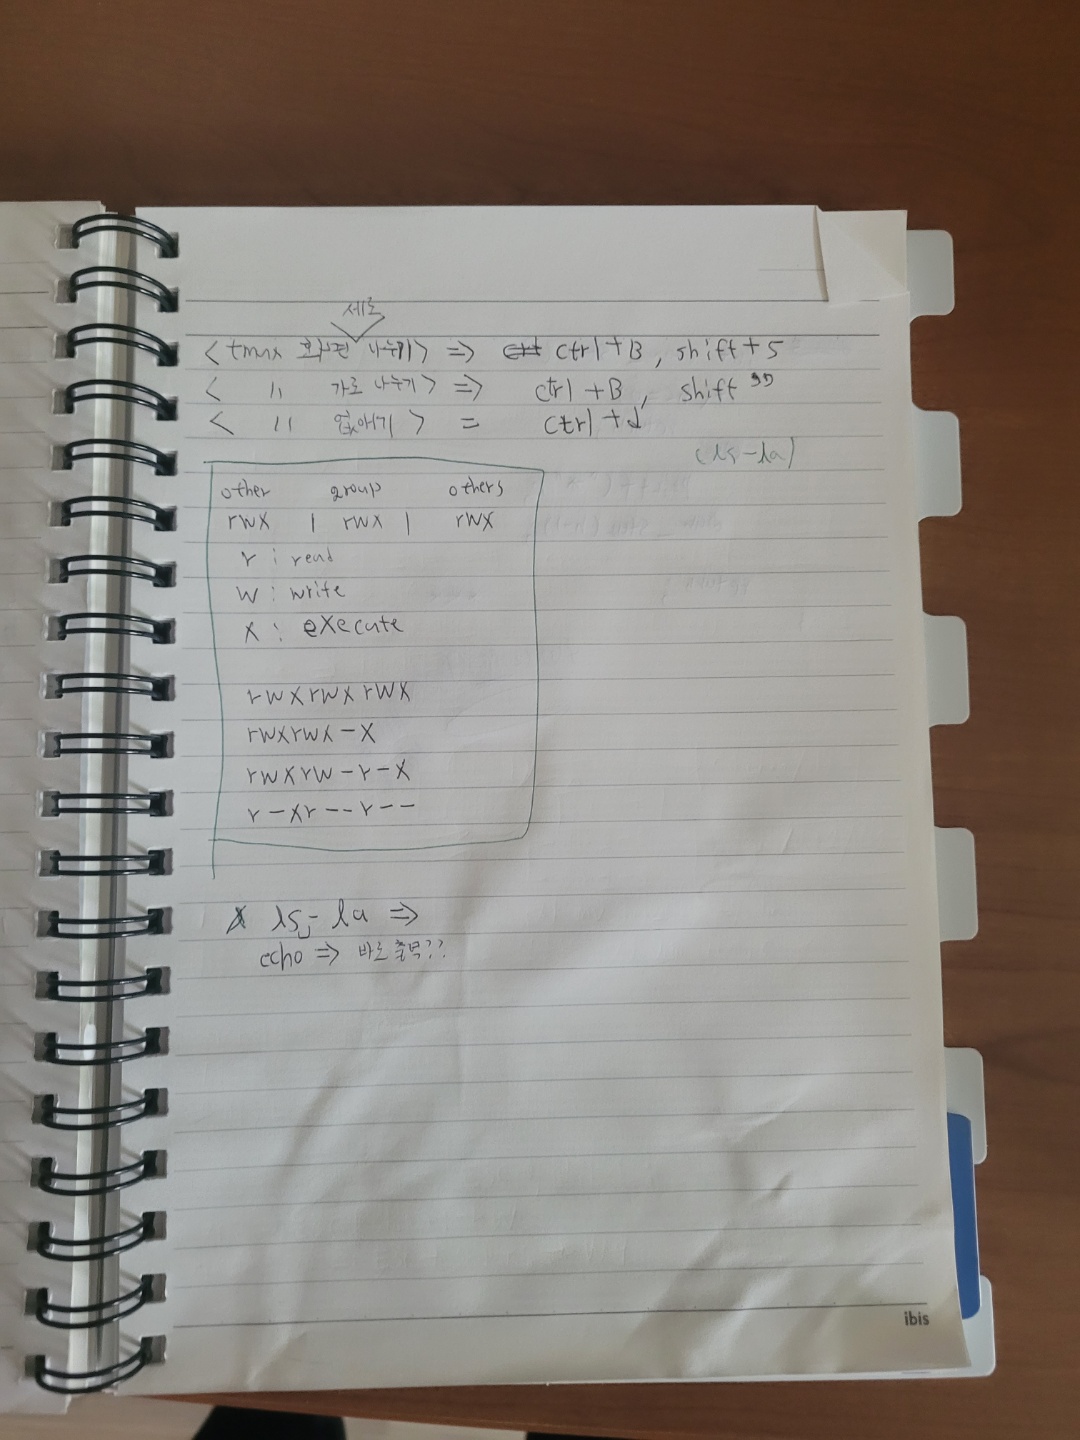 세로
<tmux 화면 나누기> => ctrl+B, shift+5
< 〃 가로 나누기> => ctrl+B, shift "
< 〃 없애기 > = ctrl+d
(ls-la)
other group others
rwx | rwx | rwx
r : read
w : write
x : execute
rwxrwxrwx
rwxrwx-x
rwxrw-r-x
r-xr--r--
ls - la =>
echo => 바로 출력??
ibis